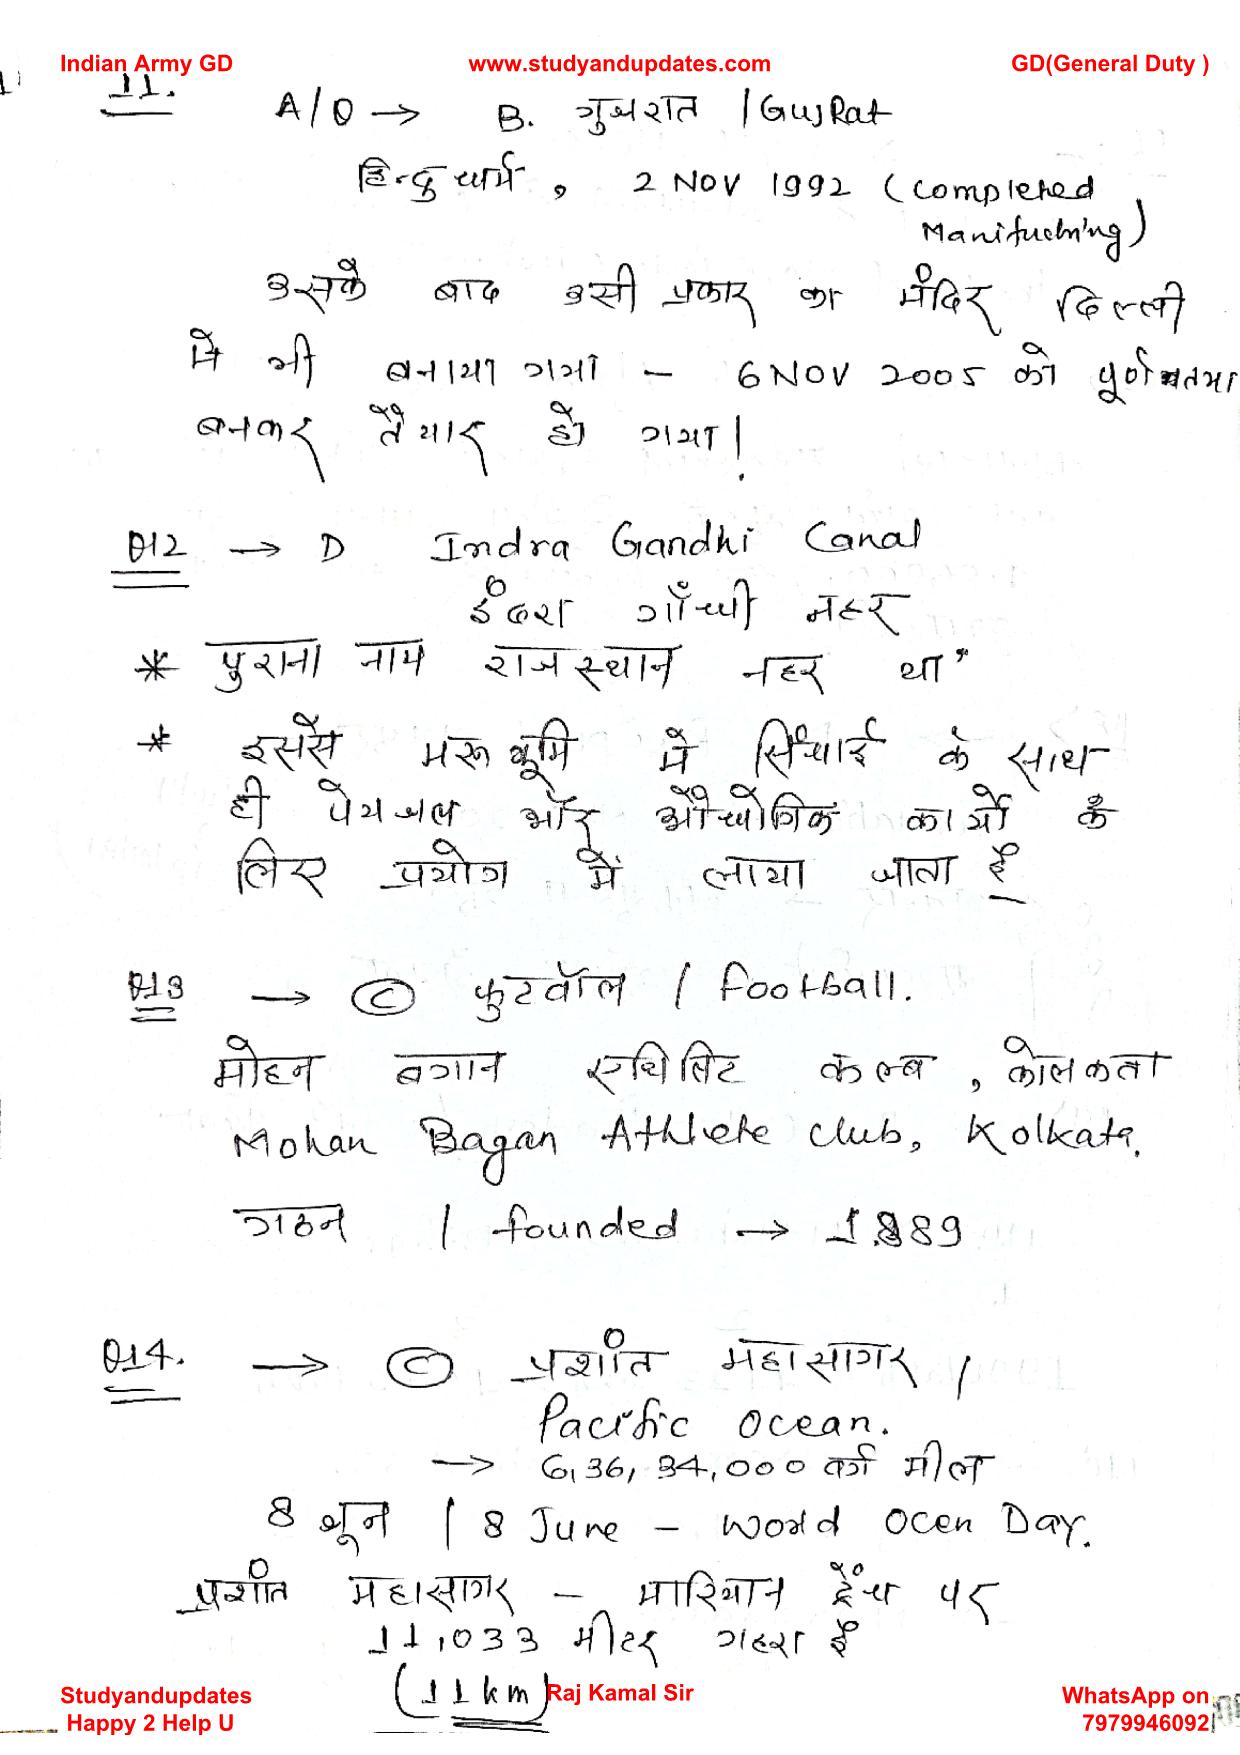 Indian Army GD www.studyandupdates.com GD(General Duty )
11. A/Q → B. गुजरात / GujRat
हिन्दु धर्म , 2 NOV 1992 (Completed
Manifuctring)
उसके बाद उसी प्रकार का मंदिर दिल्ली
मे भी बनाया गया – 6 NOV 2005 को पूर्णतया
बनकर तैयार हो गया!
Q12 → D Indra Gandhi Canal
इंदरा गाँधी नहर
* पुराना नाम राजस्थान नहर था"
* इससे मरूभूमि मे सिंचाई के साथ
ही पेयजल और औद्योगिक कार्यो के
लिए प्रयोग में लाया जाता है
Q13 → C फुटबॉल / football.
मोहन बगान एथिलिट कल्ब , कोलकता
Mohan Bagan Athlete club, Kolkata.
गठन / founded → 1889
Q14. → C प्रशांत महासागर /
Pacific ocean.
→ 6,36,34,000 वर्ग मील
8 जून / 8 June – World Ocen Day.
प्रशांत महासागर – मारियान ट्रेंच पर
11,033 मीटर गहरा है
(11 km) Raj Kamal Sir
Studyandupdates WhatsApp on
Happy 2 Help U 7979946092